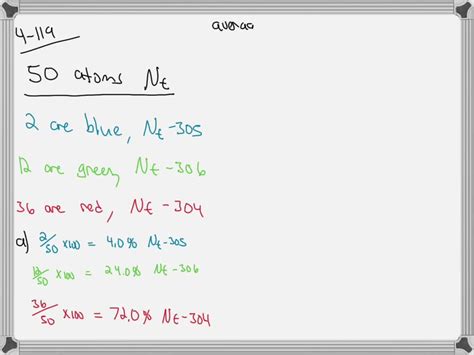 4-119
averag
50 atoms Nt
2 are blue, Nt-305
12 are green, Nt-306
36 are red, Nt-304
a) 2/50 x100 = 4.0% Nt-305
12/50 x100 = 24.0% Nt-306
36/50 x100 = 72.0% Nt-304